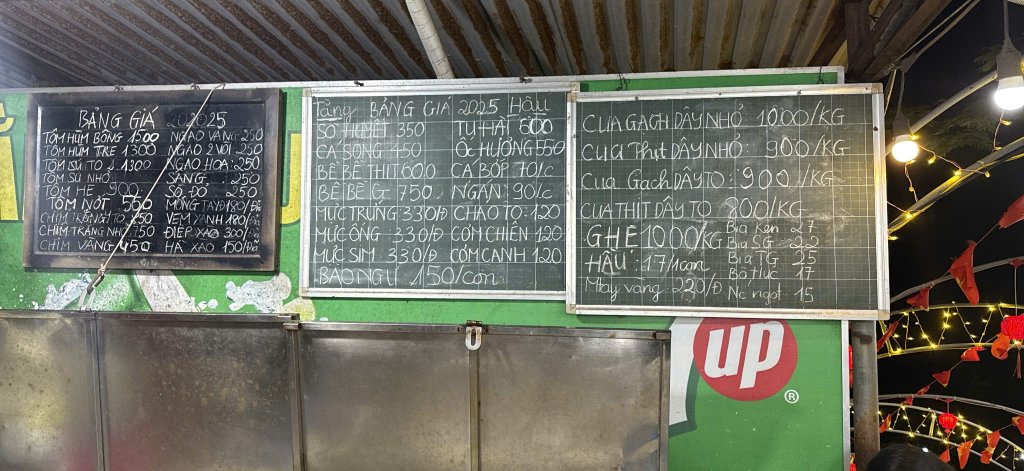 BẢNG GIÁ 2025
TÔM HÙM BÔNG 1500 NGAO VÀNG 250
TÔM HÙM TRE 1300 NGAO 2 VÒI 250
TÔM SÚ TO 1300 NGAO HOA: 250
TÔM SÚ NHỎ SÀNG: 250
TÔM HE 900 SÒ ĐỎ 250
TÔM NỚT 550 MÓNG TAY 180/Đĩa
CHÌM TRẮNG TO 850 VẸM XANH 180/Đĩa
CHÌM TRẮNG NHỎ 750 ĐIỆP XÀO 300/Đ
CHÌM VÀNG 450 HÀ XÀO 150/Đĩa
BẢNG GIÁ 2025 Hậu
SÒ HUYẾT 350 TU HÀI 600
CÁ SONG 450 ỐC HƯƠNG 550
BỀ BỀ THỊT 600 CÁ BỚP 70/c
BỀ BỀ G 750 NGÁN 90/c
MỰC TRỨNG 330/Đ CHÁO TO: 120
MỰC ỐNG 330/Đ CƠM CHIÊN 120
MỰC SIM 330/Đ CƠM CANH 120
BÀO NGƯ 150/con
CUA GẠCH DÂY NHỎ: 1000/KG
Cua Thịt DÂY NHỎ: 900/KG
Cua Gạch DÂY TO: 900/KG
CUA THỊT DÂY TO 800/KG
GHẸ 1000/KG Bia Ken 27
Bia SG 22
HÀU: 17/1con Bia TG 25
Bò húc 17
Mây vàng: 220/Đ Nc ngọt: 15
up
®